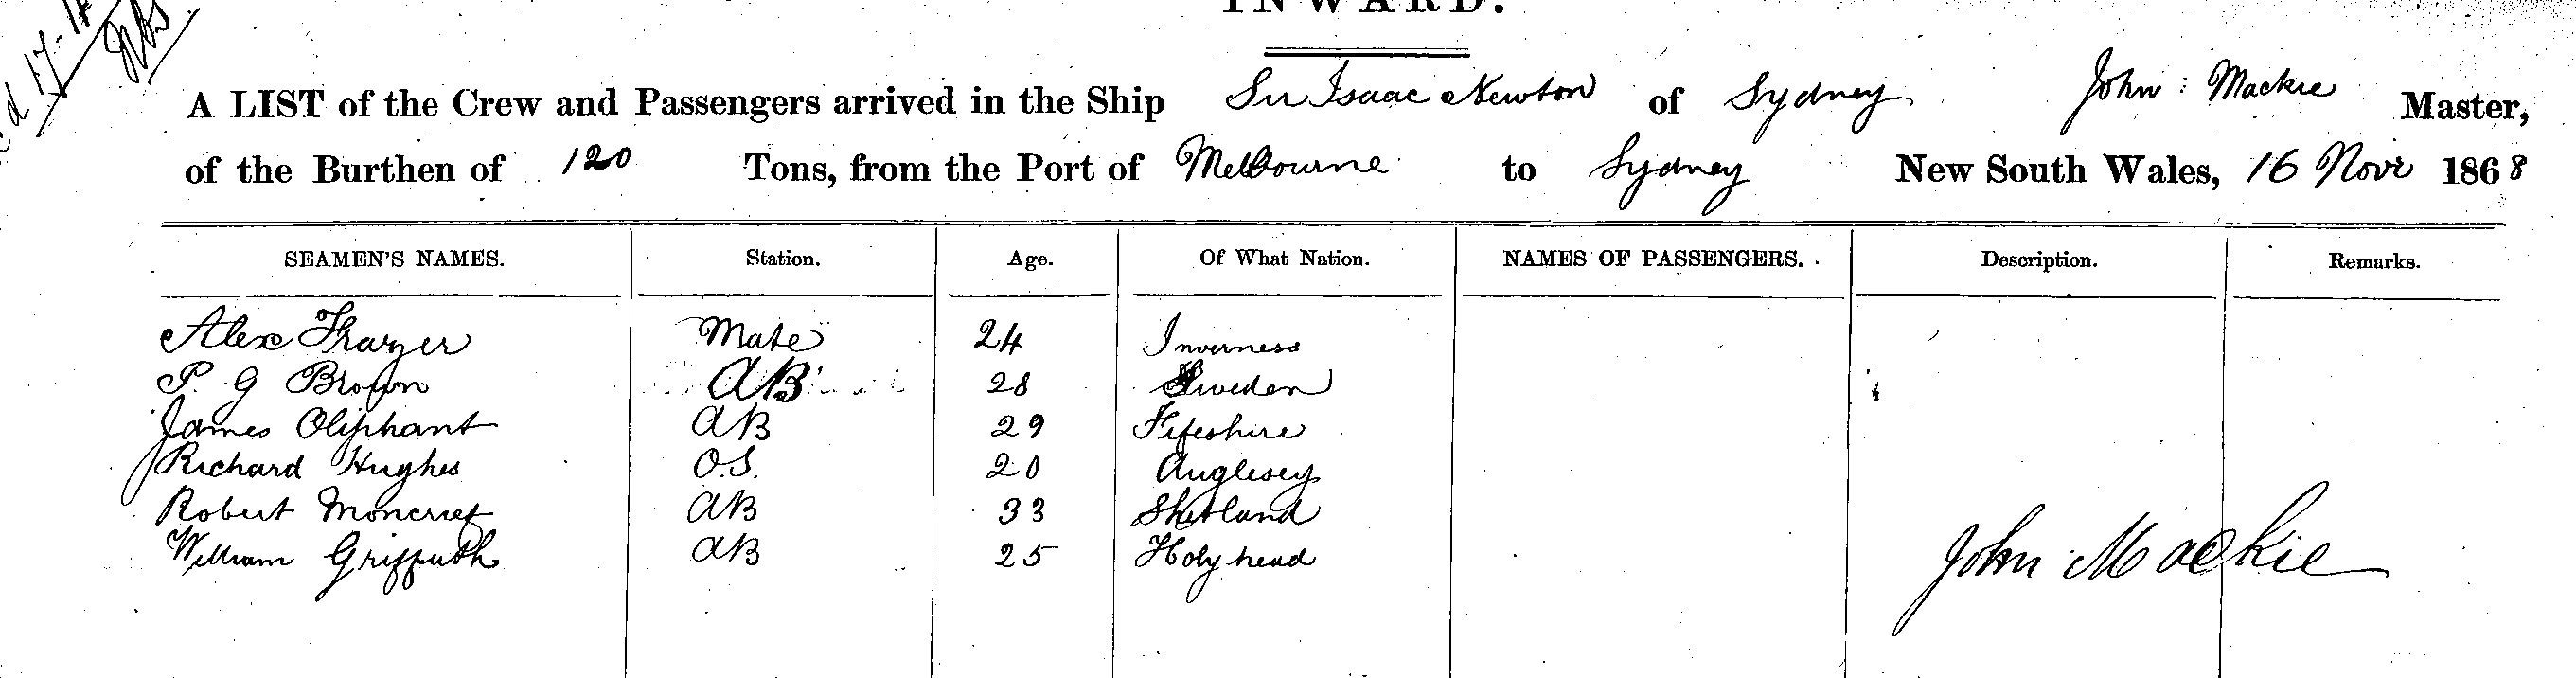 INWARD.
A LIST of the Crew and Passengers arrived in the Ship Sir Isaac Newton of Sydney John Mackie Master,
of the Burthen of 120 Tons, from the Port of Melbourne to Sydney New South Wales, 16 Novr 1868
SEAMEN'S NAMES. Station. Age. Of What Nation. NAMES OF PASSENGERS. Description. Remarks.
Alex Frazer Mate 24 Inverness
P. G Brown AB 28 Sweden
James Oliphant AB 29 Fifeshire
Richard Hughes O.S. 20 Anglesey
Robert Moncrief AB 33 Shetland
William Griffith AB 25 Holyhead
John Mackie